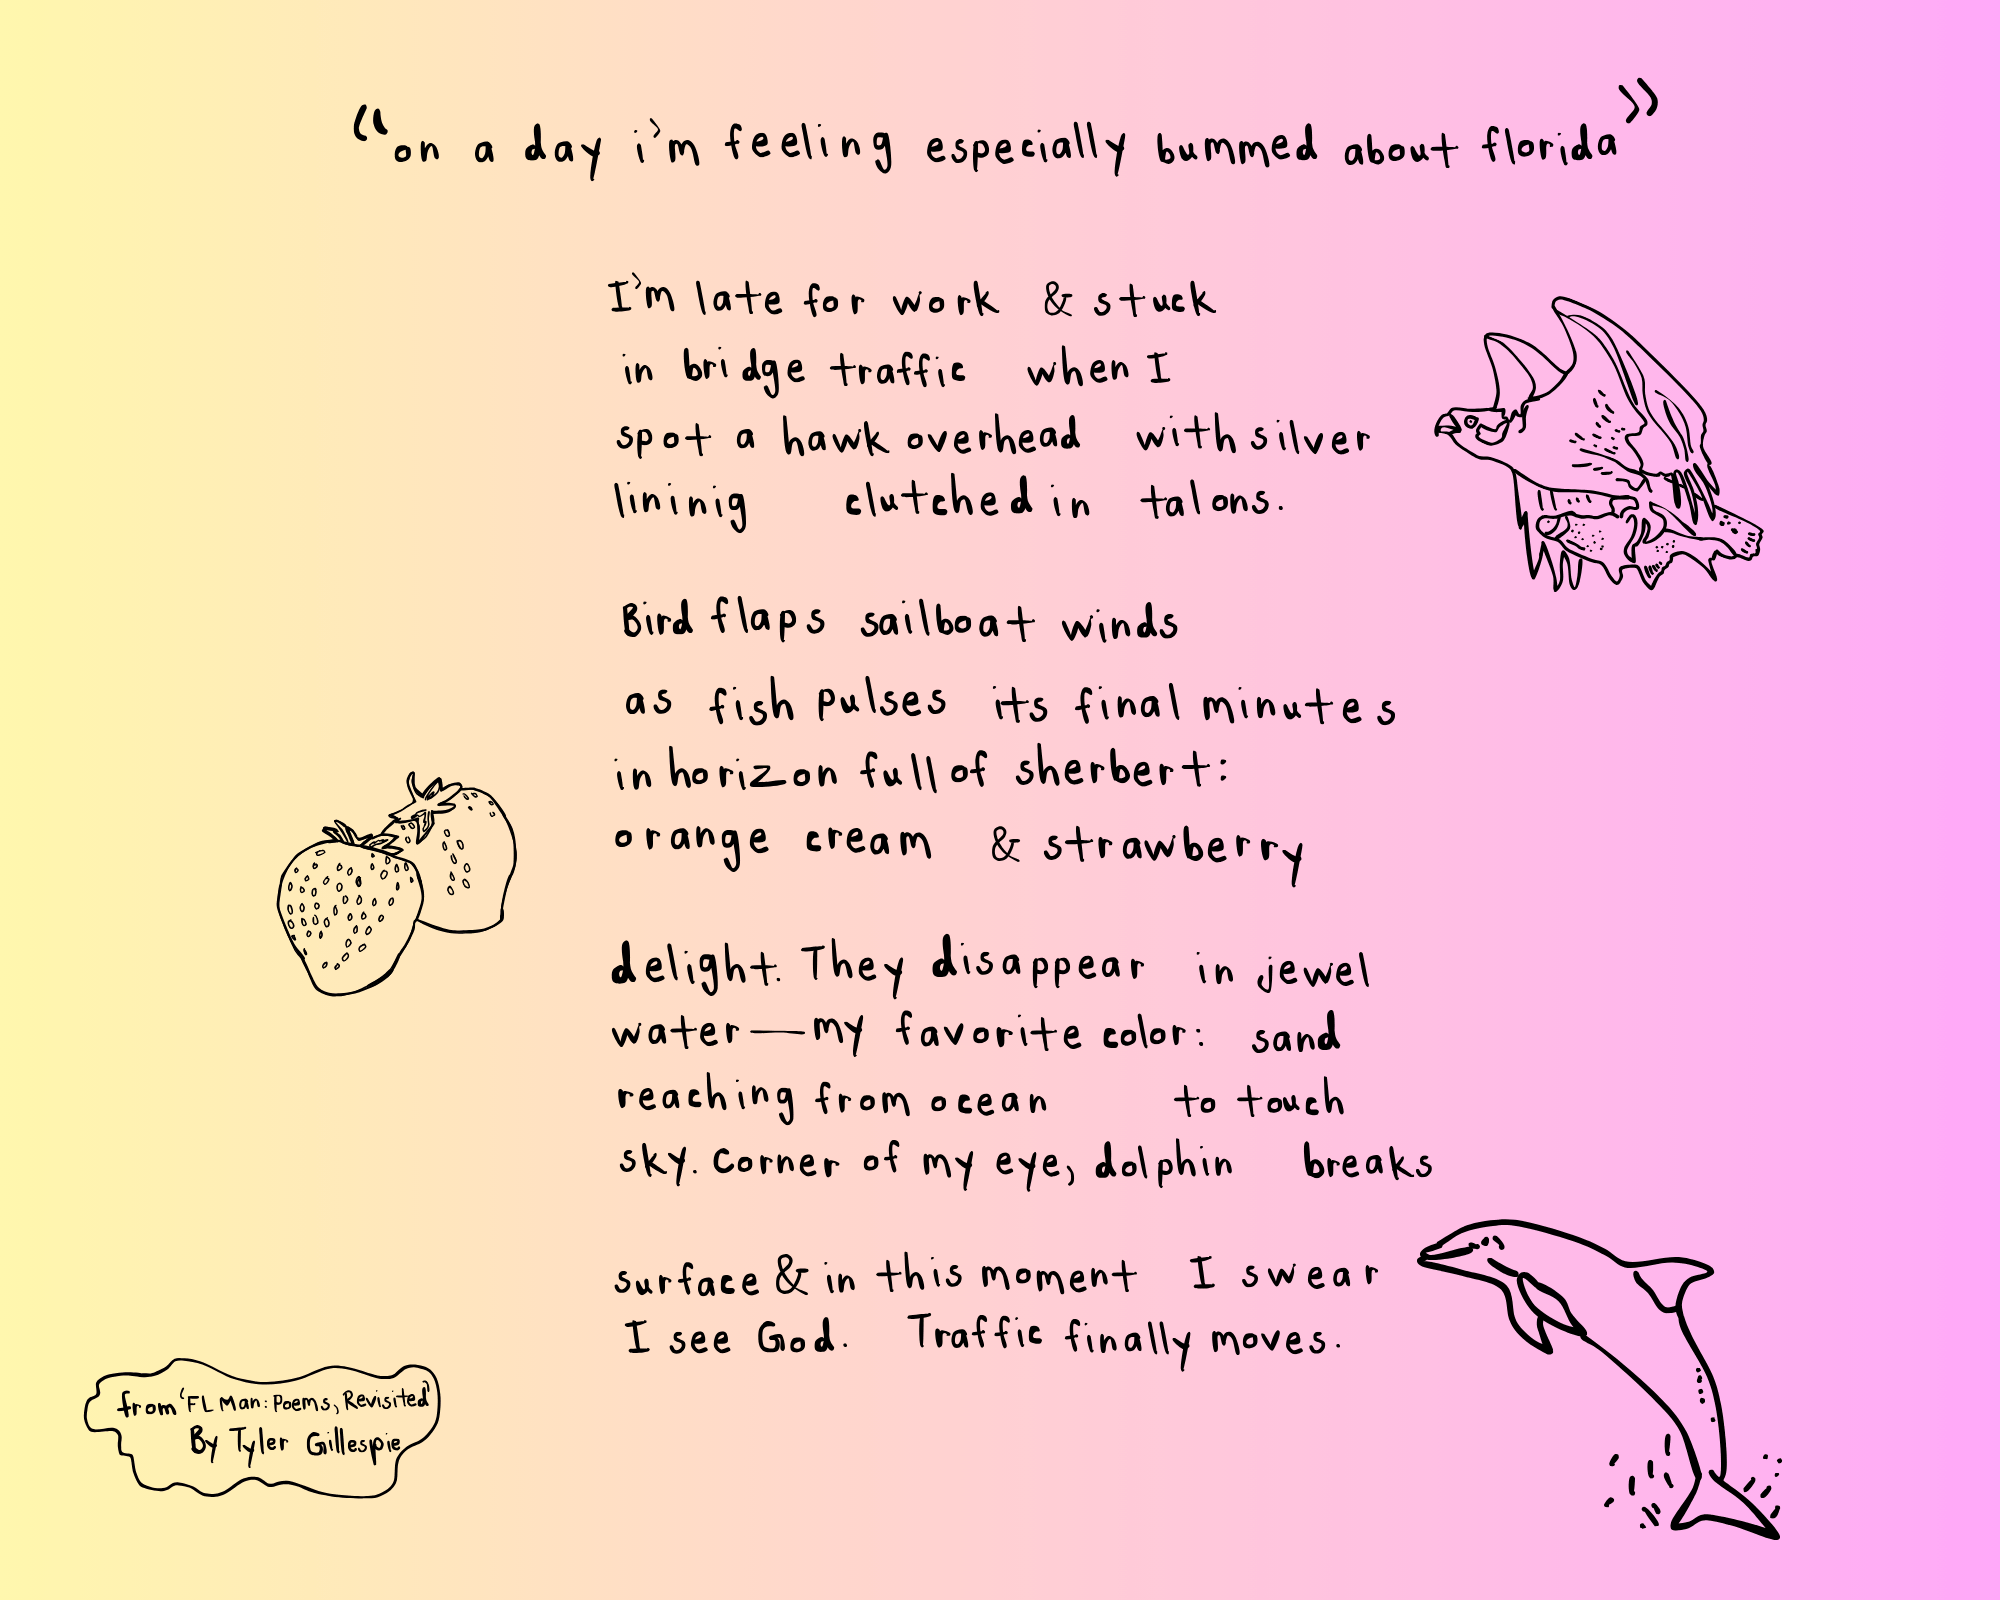 "on a day i'm feeling especially bummed about florida"
I'm late for work & stuck
in bridge traffic when I
spot a hawk overhead with silver
lininig clutched in talons.
Bird flaps sailboat winds
as fish pulses its final minutes
in horizon full of sherbert:
orange cream & strawberry
delight. They disappear in jewel
water—my favorite color: sand
reaching from ocean to touch
sky. Corner of my eye, dolphin breaks
surface & in this moment I swear
I see God. Traffic finally moves.
from 'FL Man: Poems, Revisited'
By Tyler Gillespie